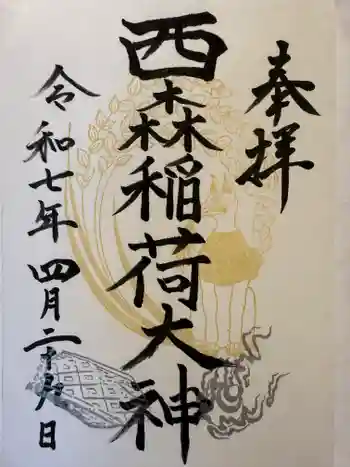 奉拝
西森稲荷大神
令和七年四月二十八日